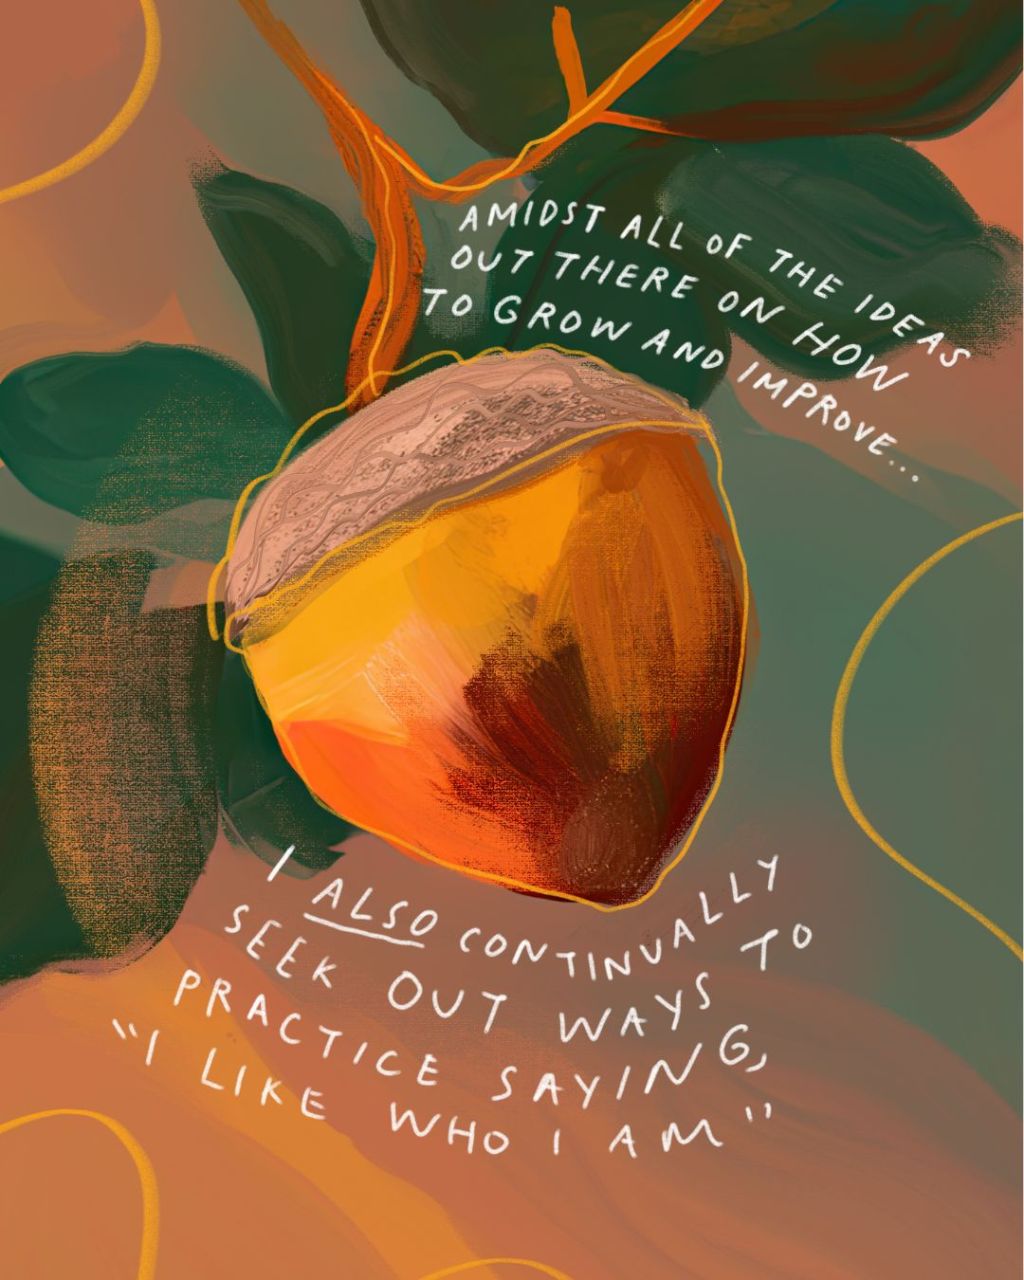 AMIDST ALL OF THE IDEAS
OUT THERE ON HOW
TO GROW AND IMPROVE...
I ALSO CONTINUALLY
SEEK OUT WAYS TO
PRACTICE SAYING,
"I LIKE WHO I AM"